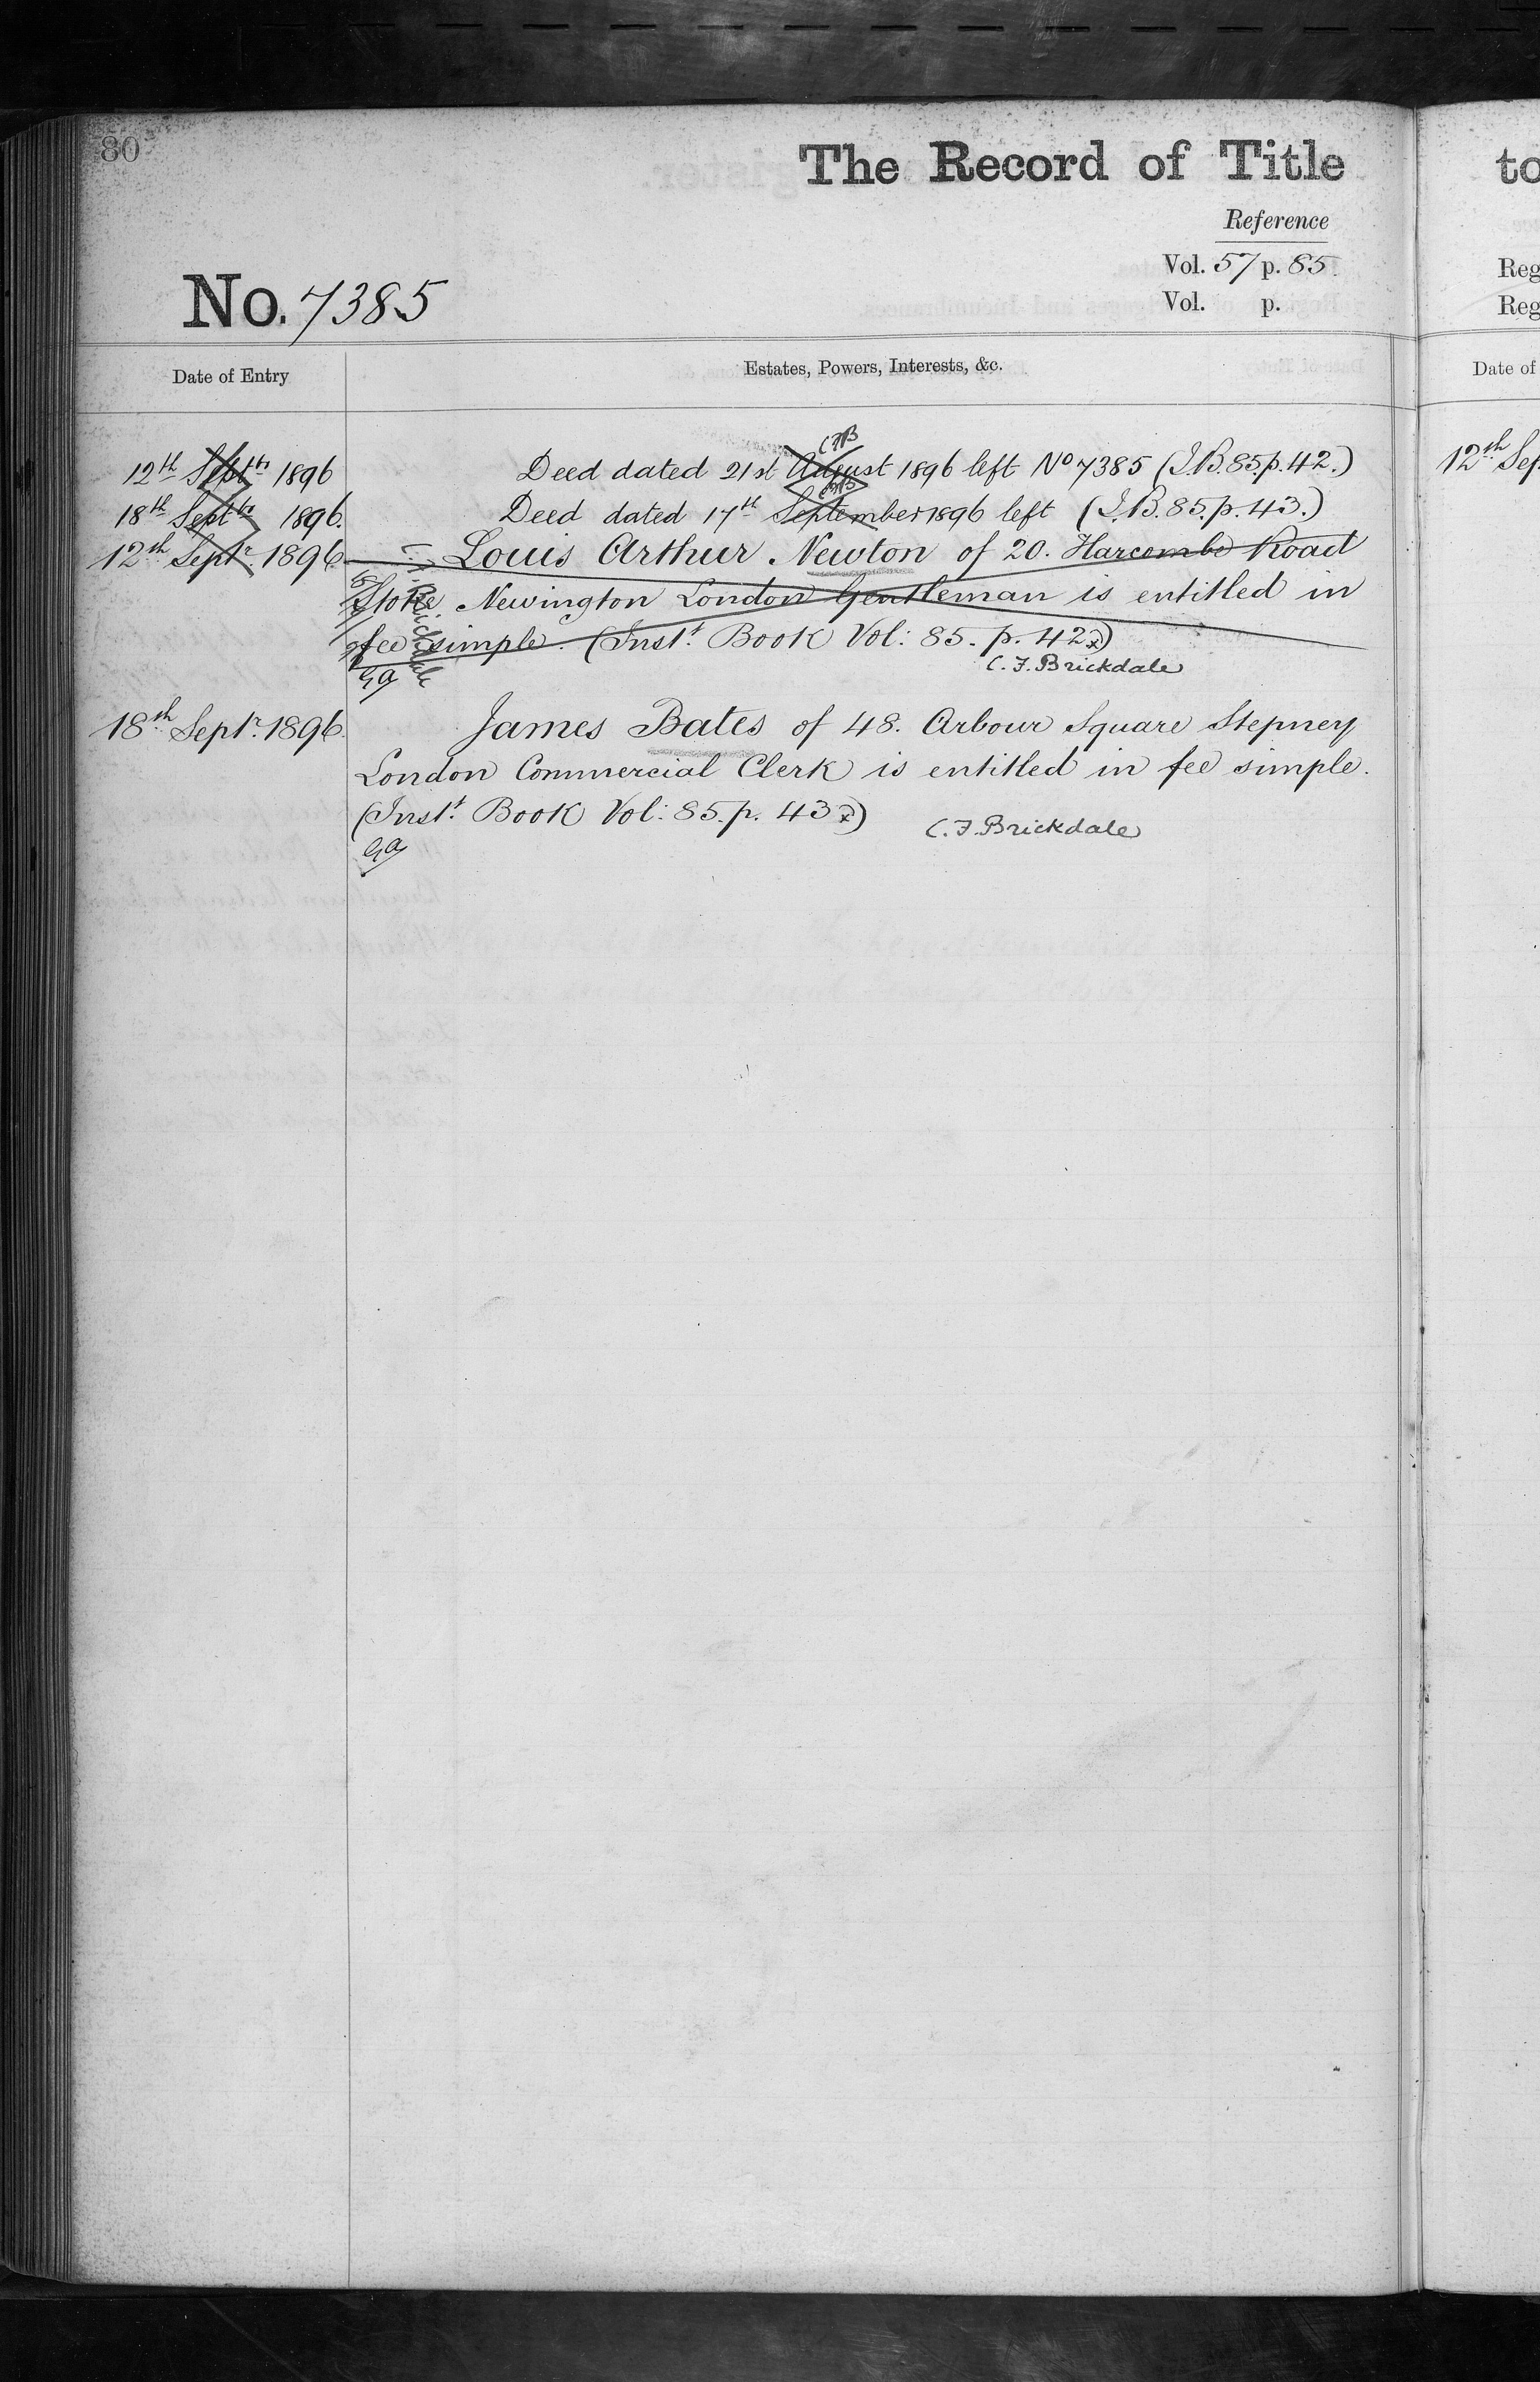 80
The Record of Title
Reference
Vol. 57 p. 85.
No. 7385
Vol. p.
Date of Entry
Estates, Powers, Interests, &c.
CFB
12th Septr 1896 Deed dated 21st August 1896 left No 7385 (I.B. 85. p. 42.)
CFB
18th Septr 1896. Deed dated 17th September 1896 left (I.B. 85. p. 43.)
12th Septr 1896 Louis Arthur Newton of 20. Harcombe Road
Stoke Newington London Gentleman is entitled in
fee simple. (Inst. Book Vol: 85. p. 42)
C. F. Brickdale
18th Septr. 1896. James Bates of 48. Arbour Square Stepney
London Commercial Clerk is entitled in fee simple.
(Inst. Book Vol: 85. p. 43)
C. F. Brickdale
to
Reg
Reg
Date of
12th Sep